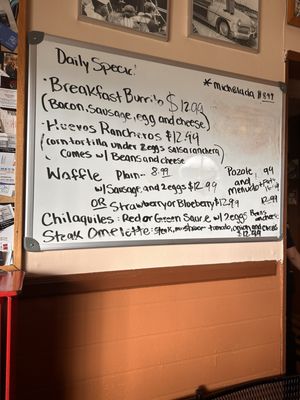 Daily Special
*michelada $8.99
·Breakfast Burrito $12.99
(Bacon, Sausage, egg and cheese)
·Huevos Rancheros $12.99
(corn tortilla under 2eggs salsa ranchera)
Comes w/ Beans and cheese
Waffle Plain- 8.99
w/Sausage, and 2 eggs $12.99
OR Strawberry or Blueberry $12.99
Pozole,
and
menudo
Chilaquiles: Red or Green Sauce w/ 2 eggs Beans and cheese 12.99
Steak Omelette: steak, mushroom tomato, onion and cheese
$12.99